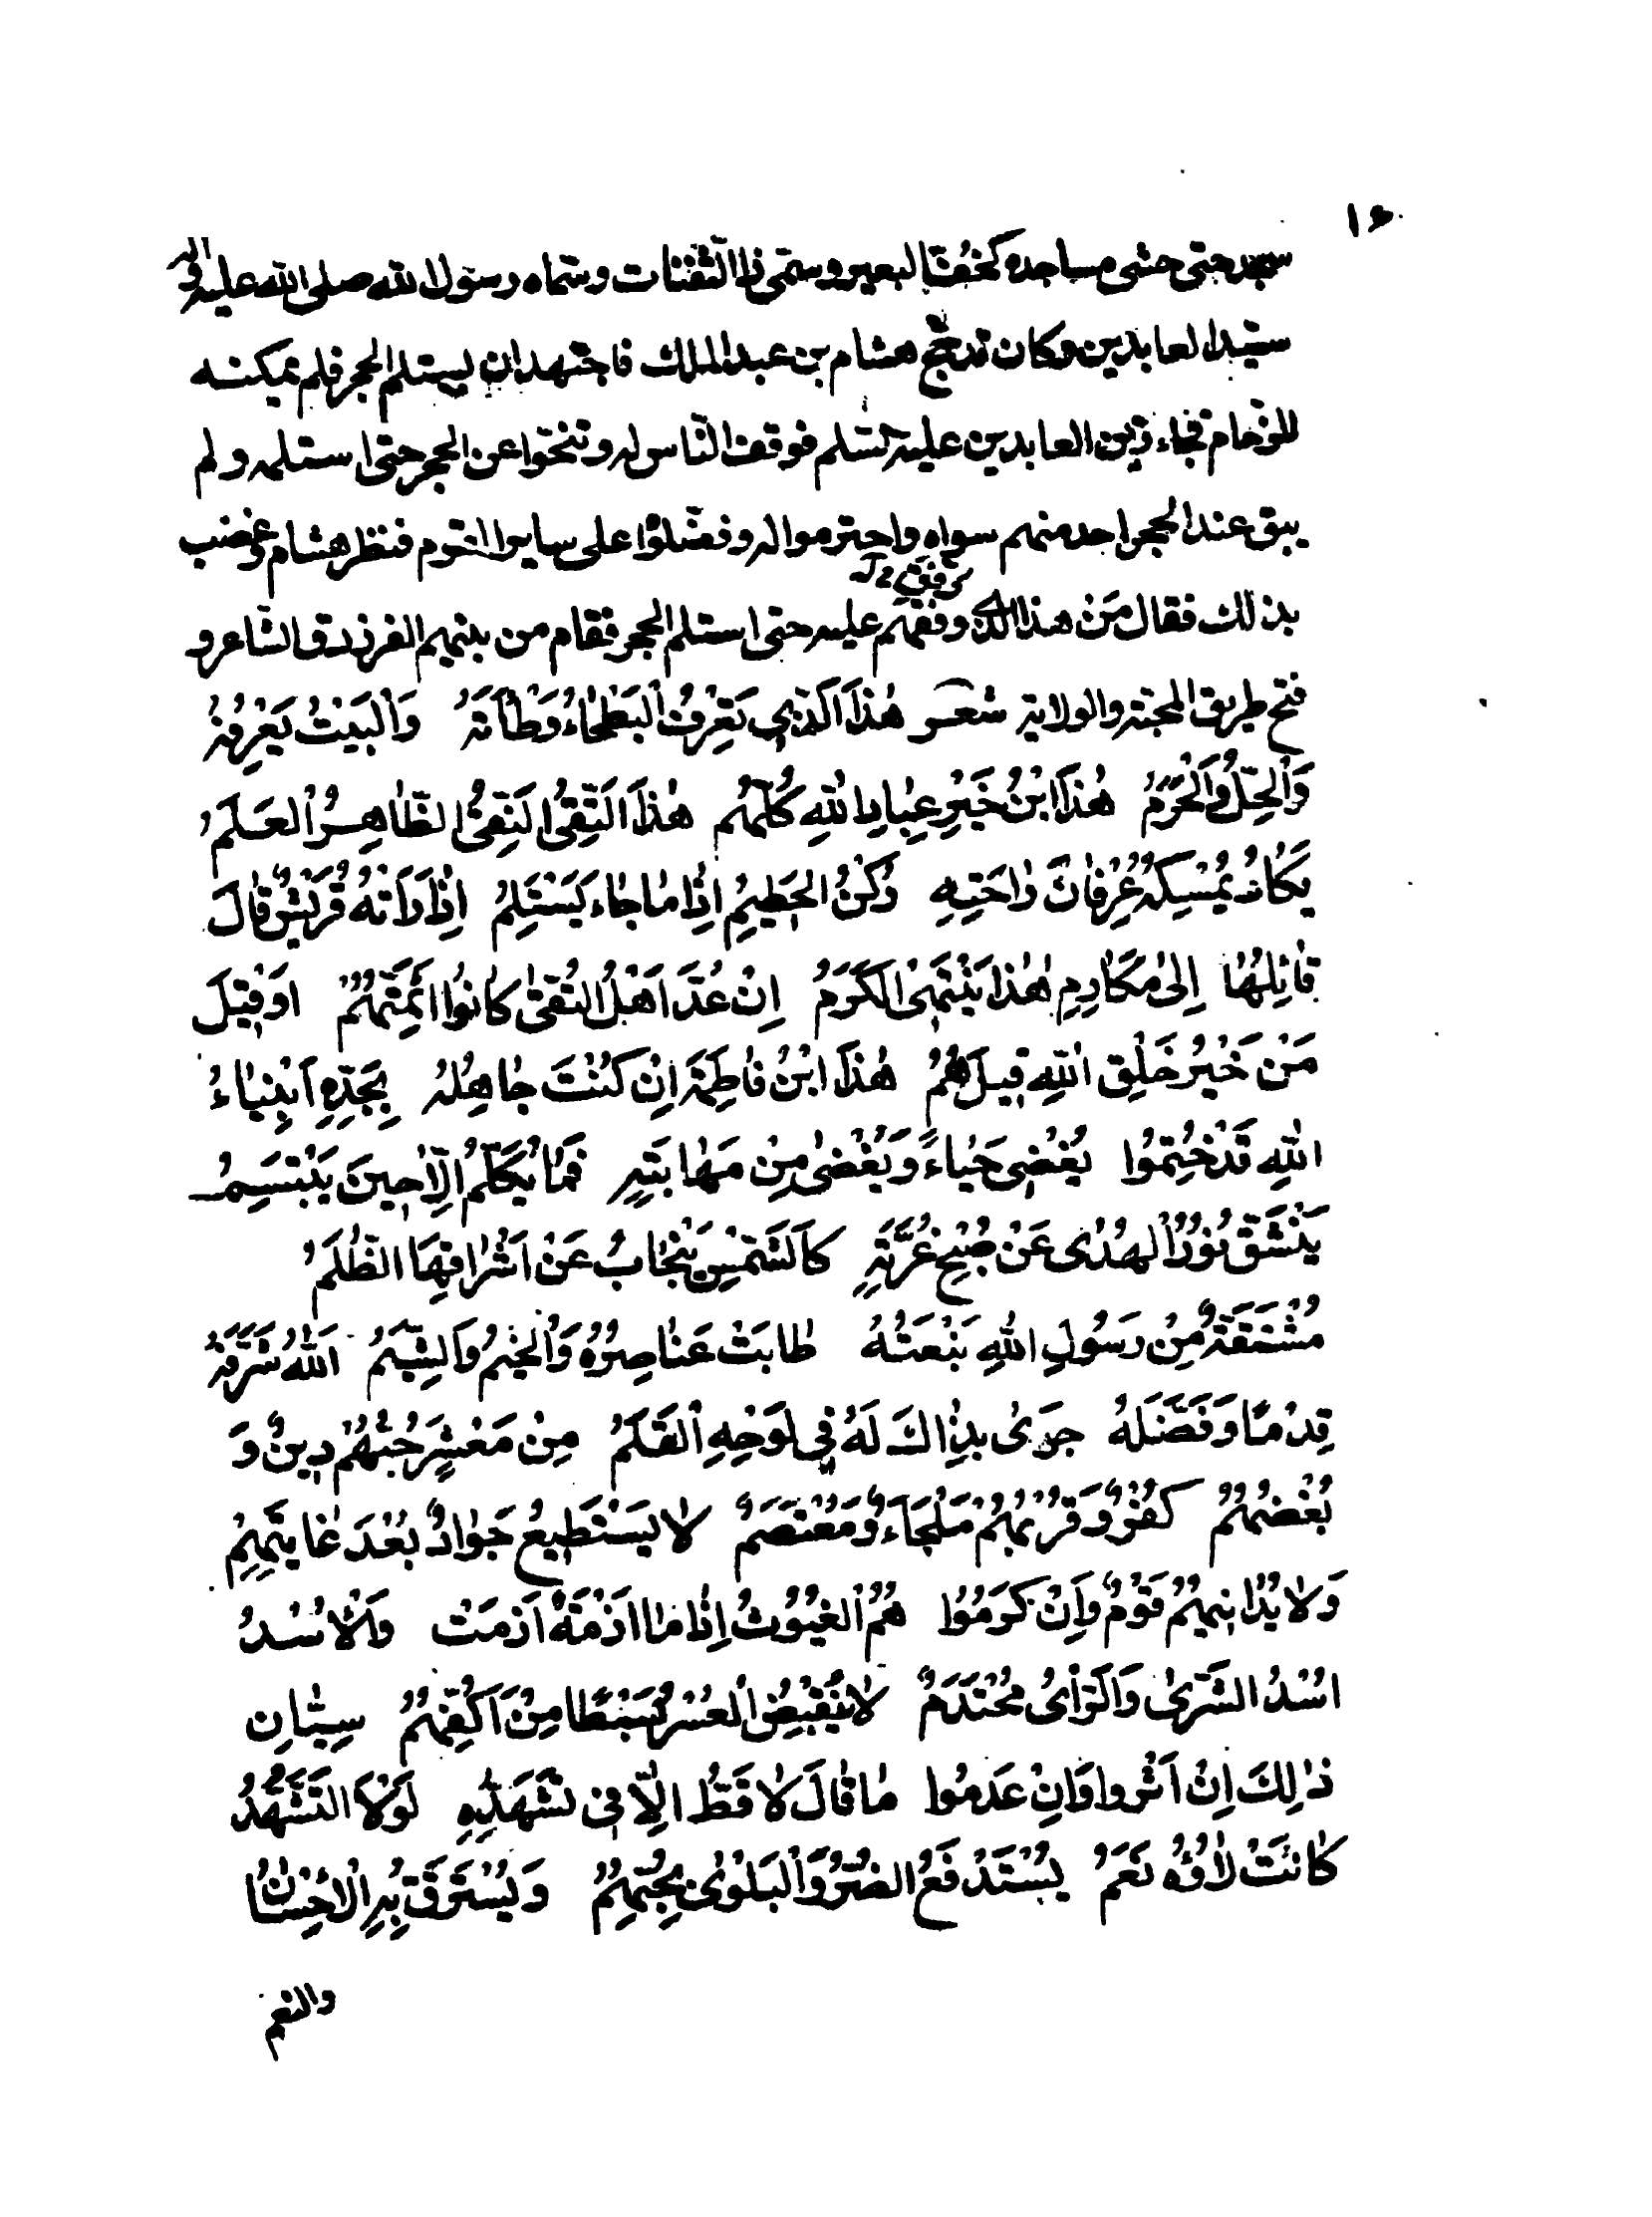 ١٦
سجد حتى حشى مساجده كخف البعير وسمى ذا الثفنات وسماه رسول الله صلى الله عليه وآله
سيد العابدين وكان قد حج هشام بن عبد الملك فاجتهد ان يستلم الحجر فلم يمكنه
للزحام فجاء زين العابدين عليه السلم فوقف الناس له وتنحوا عن الحجر حتى استلمه ولم
يبق عند الحجر احد منهم سواه واحترموا له وفضلوا على ساير القوم فنظر هشام وغضب
بذلك فقال من هذا الذي وفقهم عليه حتى استلم الحجر فقام من بينهم الفرزدق الشاعر و
فتح طريق المحبة والولاية شعر هٰذَا الَّذِي تَعْرِفُ الْبَطْحَاءُ وَطْأَتَهُ وَالْبَيْتُ يَعْرِفُهُ
وَالْحِلُّ وَالْحَرَمُ هٰذَا ابْنُ خَيْرِ عِبَادِ اللهِ كُلِّهُمُ هٰذَا التَّقِيُّ النَّقِيُّ الطَّاهِرُ الْعَلَمُ
يَكَادُ يُمْسِكُهُ عِرْفَانَ رَاحَتِهِ رُكْنُ الْحَطِيمِ اِذَا مَا جَاءَ يَسْتَلِمُ اِذَا رَاَتْهُ قُرَيْشٌ قَالَ
قَائِلُهَا اِلىٰ مَكَارِمِ هٰذَا يَنْتَهِى الْكَرَمُ اِنْ عُدَّ اَهْلُ التُّقىٰ كَانُوا ائِمَّتَهُمْ اَوْ قِيلَ
مَنْ خَيْرُ خَلْقِ اللهِ قِيلَ هُمُ هٰذَا ابْنُ فَاطِمَةَ اِنْ كُنْتَ جَاهِلُهُ بِجَدِّهِ اَنْبِيَاءُ
اللهِ قَدْ خُتِمُوا يُغْضِي حَيَاءً وَيُغْضىٰ مِنْ مَهَابَتِهِ فَمَا يُكَلَّمُ اِلَّا حِينَ يَبْتَسِمُ
يَنْشَقُّ نُورُ الْهُدٰى عَنْ صُبْحِ غُرَّتِهِ كَالشَّمْسِ يَنْجَابُ عَنْ اَشْرَاقِهَا الظُّلَمُ
مُشْتَقَّةٌ مِنْ رَسُولِ اللهِ نَبْعَتُهُ طَابَتْ عَنَاصِرُهُ وَالْخِيمُ وَالشِّيَمُ اَللهُ شَرَّفَهُ
قِدْمًا وَفَضَّلَهُ جَرَىٰ بِذَاكَ لَهُ فِي لَوْحِهِ الْقَلَمُ مِنْ مَعْشَرٍ حُبُّهُمْ دِينٌ وَ
بُغْضُهُمْ كُفْرٌ وَقُرْبُهُمْ مَلْجَاءٌ وَمُعْتَصَمُ لَا يَسْتَطِيعُ جَوَادٌ بُعْدَ غَايَتِهِمْ
وَلَا يُدَانِيهِمُ قَوْمٌ وَاِنْ كَرَمُوا هُمُ الْغُيُوثُ اِذَا مَا اَزْمَةٌ اَزَمَتْ وَالْاُسُدُ
اُسُدُ الشَّرىٰ وَالرَّأْىُ مُحْتَدَمُ لَا يَقْبِضُ الْعُسْرُ بَسْطًا مِنْ اَكُفِّهُمُ سِيَّانِ
ذٰلِكَ اِنْ اَثْرَوا وَاِنْ عَدِمُوا مَا قَالَ لَا قَطُّ اِلَّا فِى تَشَهُّدِهِ لَوْلَا التَّشَهُّدُ
كَانَتْ لَاؤُهُ نَعَمُ يُسْتَدْفَعُ الضُّرُّ وَالْبَلْوىٰ بِحُبِّهِمُ وَيُسْتَرَقُّ بِهِ الْاِحْسَانُ
والنعم